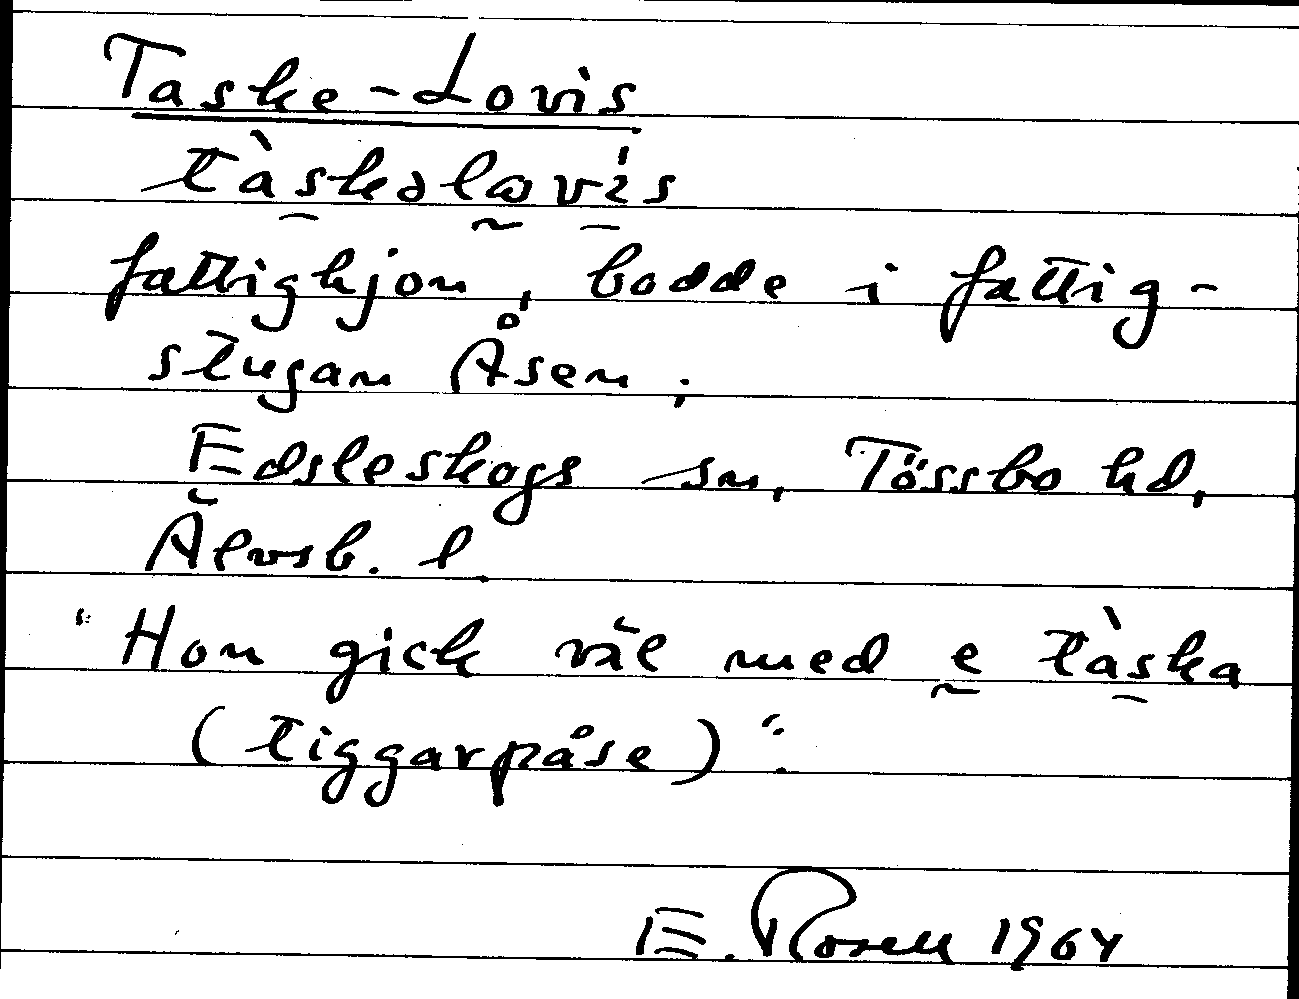 Taske-Lovis
tàskəlɷvi̇́s
fattighjon, bodde i fattig-
stugan Åsen;
Edsleskogs sn, Tössbo hd,
Älvsb. l.
"Hon gick väl med e tàska
(tiggarpåse)".
E. Rosell 1964